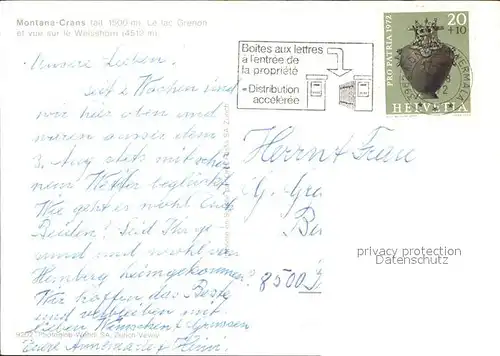 Montana-Crans (alt. 1500 m). Le lac Grenon
et vue sur le Weisshorn (4512 m)
Unsere Lieben.
Seit 2 Wochen sind
wir hier oben und
waren ausser dem
3. Aug. stets mit schö-
nem Wetter beglückt.
Wie geht es wohl Euch
Beiden? Seid Ihr ge-
sund und wohl von
Hemberg heimgekommen?
Wir hoffen das Beste
und verbleiben mit
lieben Wünschen & Grüssen
Eure Annemarie & Heini.
9202 Photoglob-Wehrli SA, Zürich-Vevey
Boîtes aux lettres
à l'entrée de
la propriété
= Distribution
accélérée
PRO PATRIA 1972
20
+10
HELVETIA
Herrn & Frau
G. Gra
Be
8500
privacy protection
Datenschutz